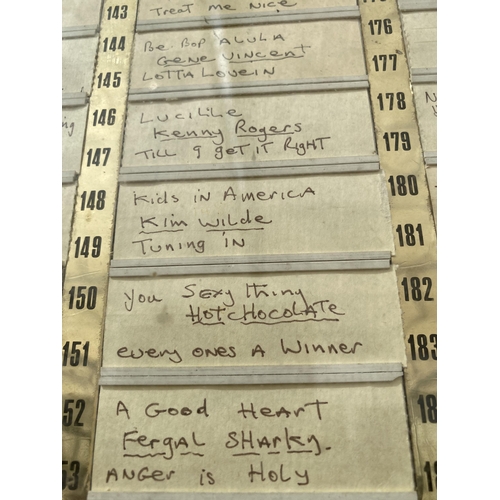 143
Treat me Nice
144
Be Bop A LULA
Gene Vincent
145
LOTTA LOVEIN
176
177
146
LUCILLE
Kenny Rogers
147
TILL I get IT Right
178
179
148
Kids in America
Kim Wilde
149
Tuning in
180
181
150
you Sexy thing
HOT CHOCOLATE
151
every ones A Winner
182
183
52
A Good Heart
Fergal Sharky.
53
Anger is Holy
18